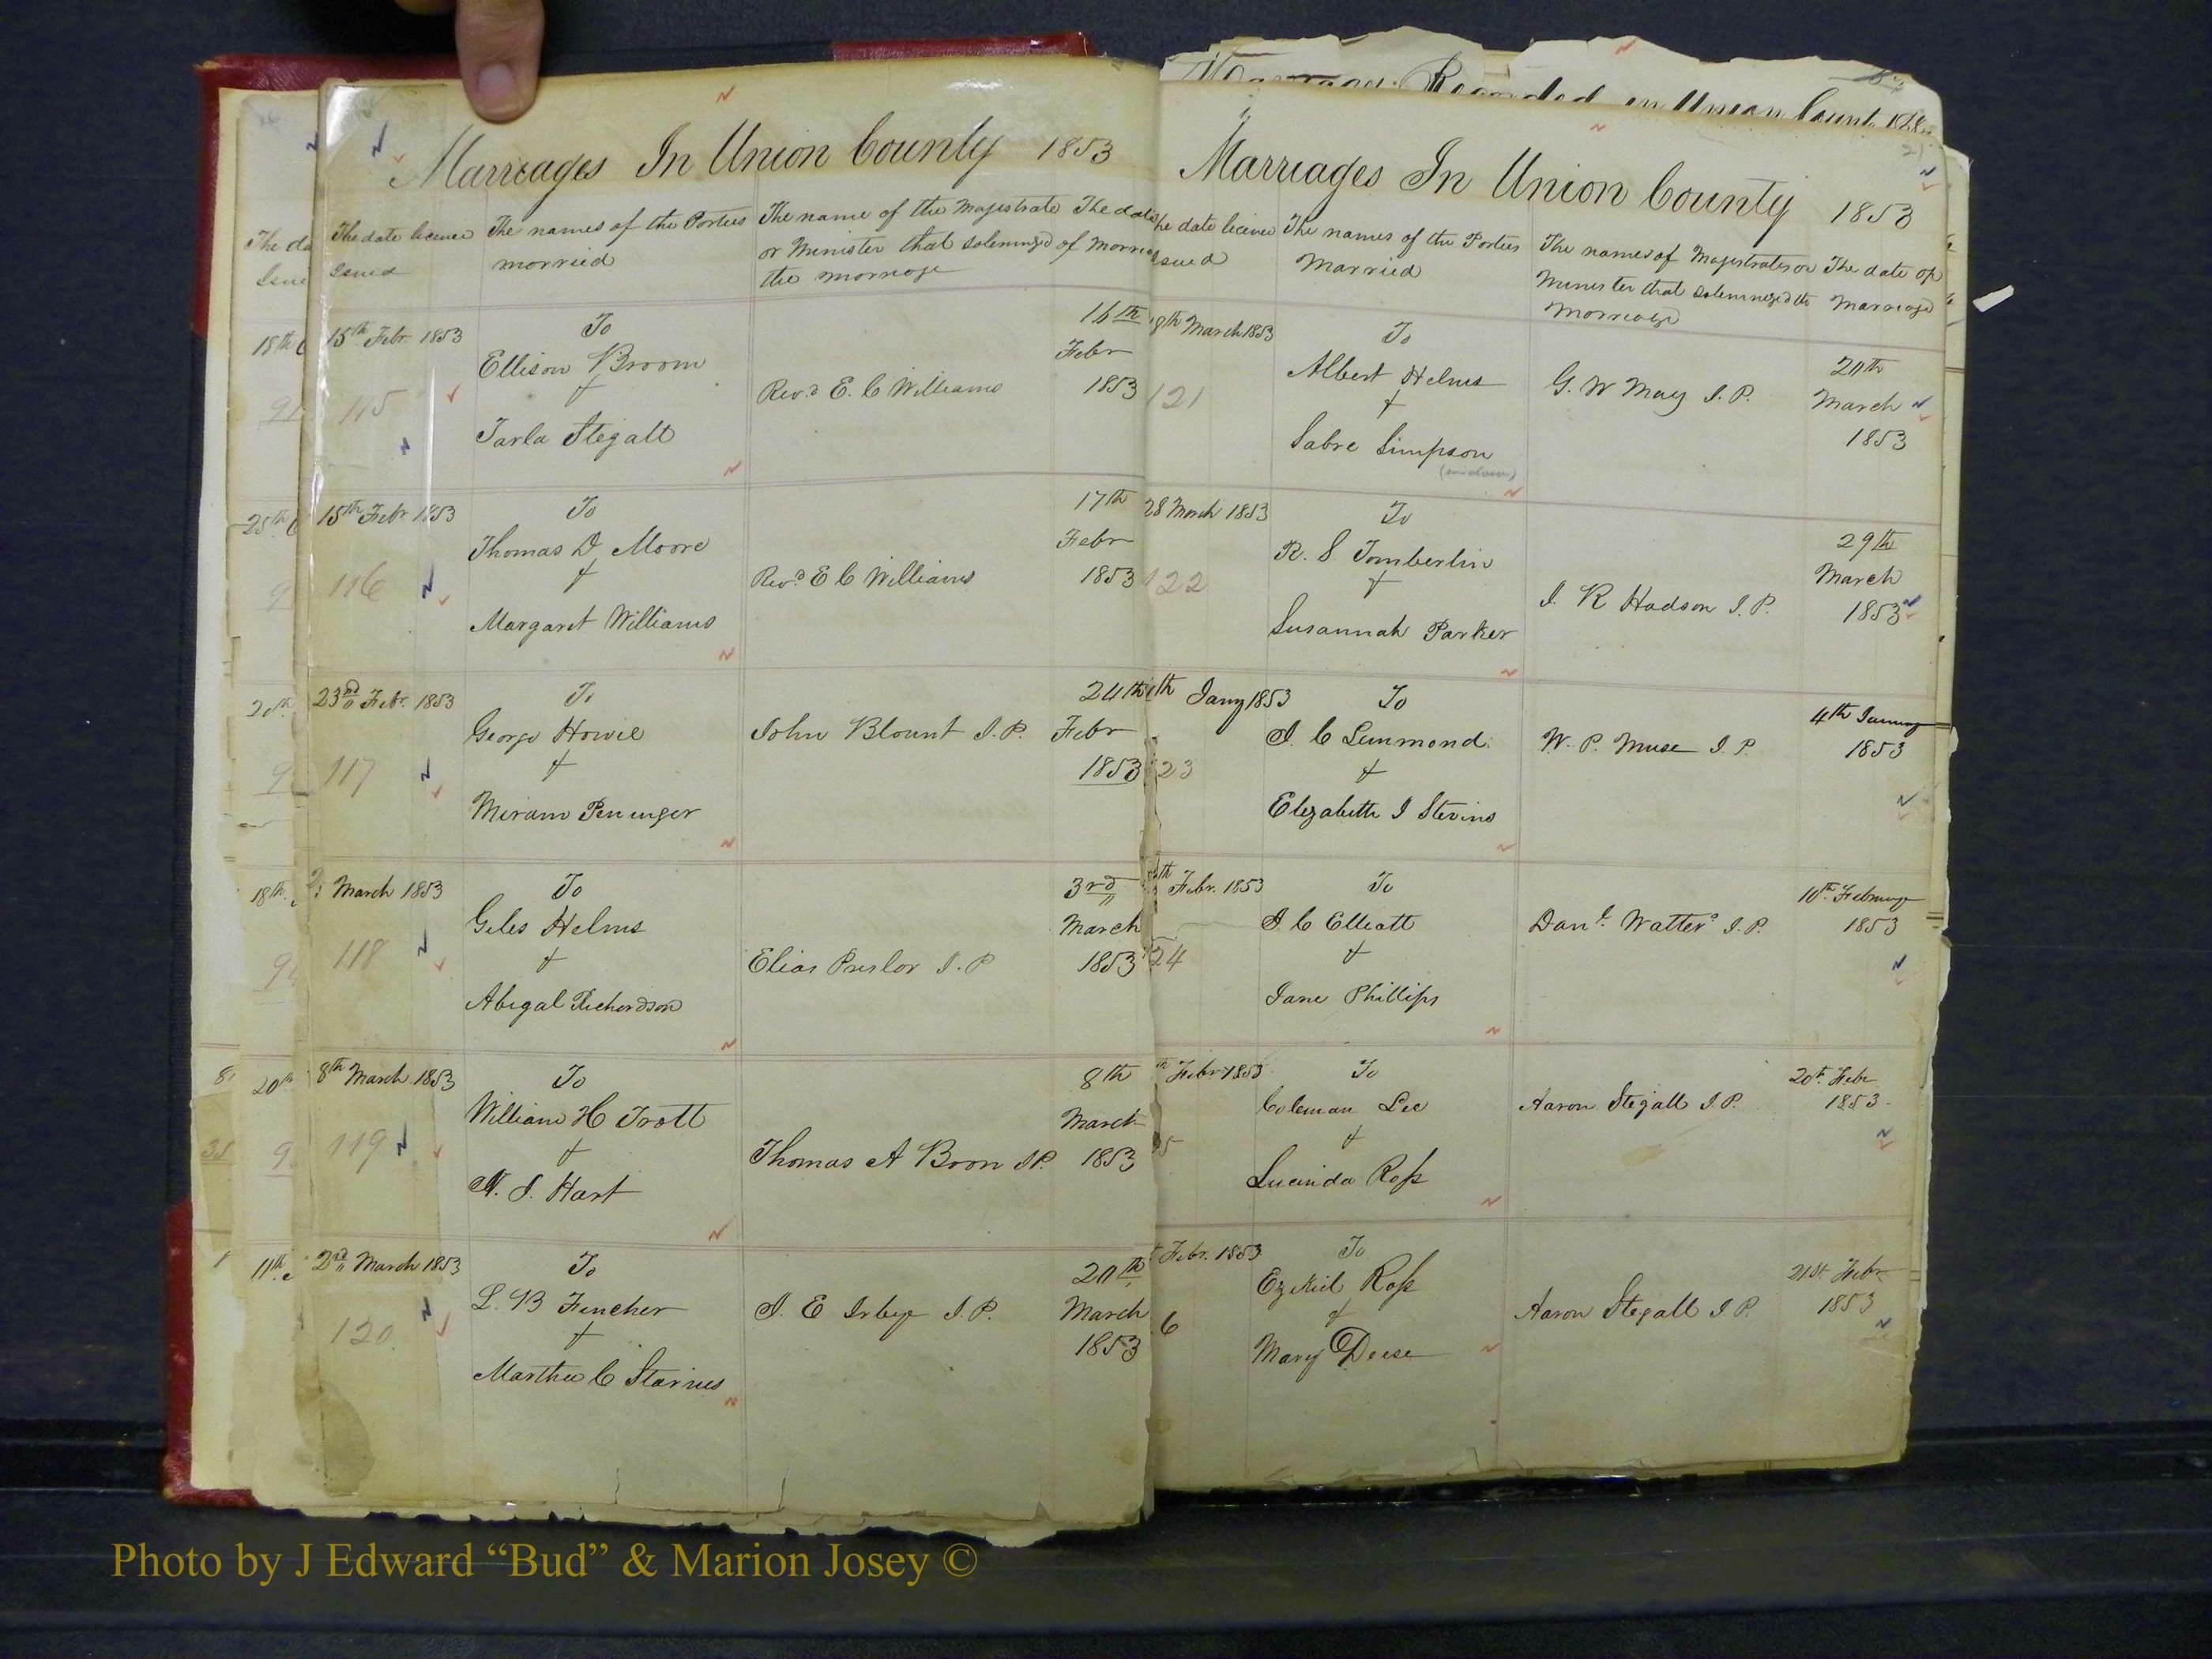 Marriages In Union County 1853
The date licence issued
The names of the Parties married
The name of the Majistrate or Minister that solemnized the marriage
The date of marriage
15th Febr. 1853
115
To
Ellison Broom
+
Tarla Stegall
Revd E. C Williams
16th
Febr
1853
15th Febr 1853
116
To
Thomas D Moore
+
Margaret Williams
Revd E C Williams
17th
Febr
1853
23rd Febr. 1853
117
To
George Howie
+
Miram
John Blount J.P.
24th
Febr
1853
March 1853
118
To
Giles Helms
+
Abigal Richardson
Elias Preslar J.P
3rd
March
1853
8th March 1853
119
To
William H Trott
+
S. Hart
Thomas A Boon JP.
8th
March
1853
2nd March 1853
120
To
L. B Fincher
+
Martha C Starnes
J. E Irby J.P.
20th
March
1853
Marriages In Union County 1853
he date licence
The names of the Parties Married
The names of Majistrates or Minister that solemnized the Marriage
The date of Marriage
8th March 1853
121
To
Albert Helms
+
Sabre Simpson
(widow)
G. W May J.P.
20th
March
1853
28 March 1853
122
To
R. S Tomberlin
+
Susannah Parker
J. R Hudson J.P.
29th
March
1853
th Jany 1853
23
To
J. C Lemmond
+
Elezabeth J Stevins
W. P. Muse J.P.
4th January
1853
th Febr. 1853
24
To
J. C Elleott
+
Jane Phillips
Danl. Watters J.P.
10th February
1853
Febr 1853
5
To
Coleman Lee
+
Lucinda Ross
Aaron Stegall J.P.
20th Febr
1853
Febr. 1853
6
To
Ezekiel Ross
+
Mary Deese
Aaron Stegall J.P.
21st Febr
1853
Recorded in Union Count
Photo by J Edward “Bud” & Marion Josey ©